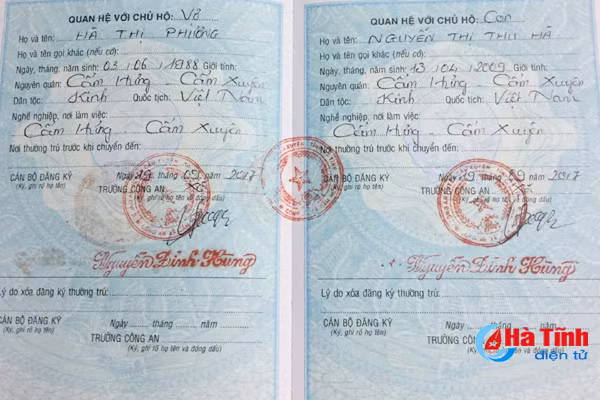 QUAN HỆ VỚI CHỦ HỘ: Vợ
Họ và tên: HÀ THỊ PHƯỜNG
Họ và tên gọi khác (nếu có):
Ngày, tháng, năm sinh: 03 / 06 / 1988 Giới tính:
Nguyên quán: Cẩm Hưng - Cẩm Xuyên
Dân tộc: Kinh Quốc tịch: Việt Nam
Nghề nghiệp, nơi làm việc:
Cẩm Hưng - Cẩm Xuyên
Nơi thường trú trước khi chuyển đến:
Ngày 19 tháng 09 năm 2017
CÁN BỘ ĐĂNG KÝ
(Ký, ghi rõ họ tên)
TRƯỞNG CÔNG AN
Nguyễn Đình Hùng
Lý do xóa đăng ký thường trú:
Ngày ..... tháng ..... năm .....
CÁN BỘ ĐĂNG KÝ
(Ký, ghi rõ họ tên)
TRƯỞNG CÔNG AN
(Ký, ghi rõ họ tên và đóng dấu)
QUAN HỆ VỚI CHỦ HỘ: Con
Họ và tên: NGUYỄN THỊ THU HÀ
Họ và tên gọi khác (nếu có):
Ngày, tháng, năm sinh: 13 / 04 / 2009 Giới tính:
Nguyên quán: Cẩm Hưng - Cẩm Xuyên
Dân tộc: Kinh Quốc tịch: Việt Nam
Nghề nghiệp, nơi làm việc:
Cẩm Hưng - Cẩm Xuyên
Nơi thường trú trước khi chuyển đến:
Ngày 19 tháng 09 năm 2017
CÁN BỘ ĐĂNG KÝ
(Ký, ghi rõ họ tên)
TRƯỞNG CÔNG AN
Nguyễn Đình Hùng
Lý do xóa đăng ký thường trú:
Ngày ..... tháng ..... năm .....
CÁN BỘ ĐĂNG KÝ
(Ký, ghi rõ họ tên)
TRƯỞNG CÔNG AN
Hà Tĩnh
điện tử